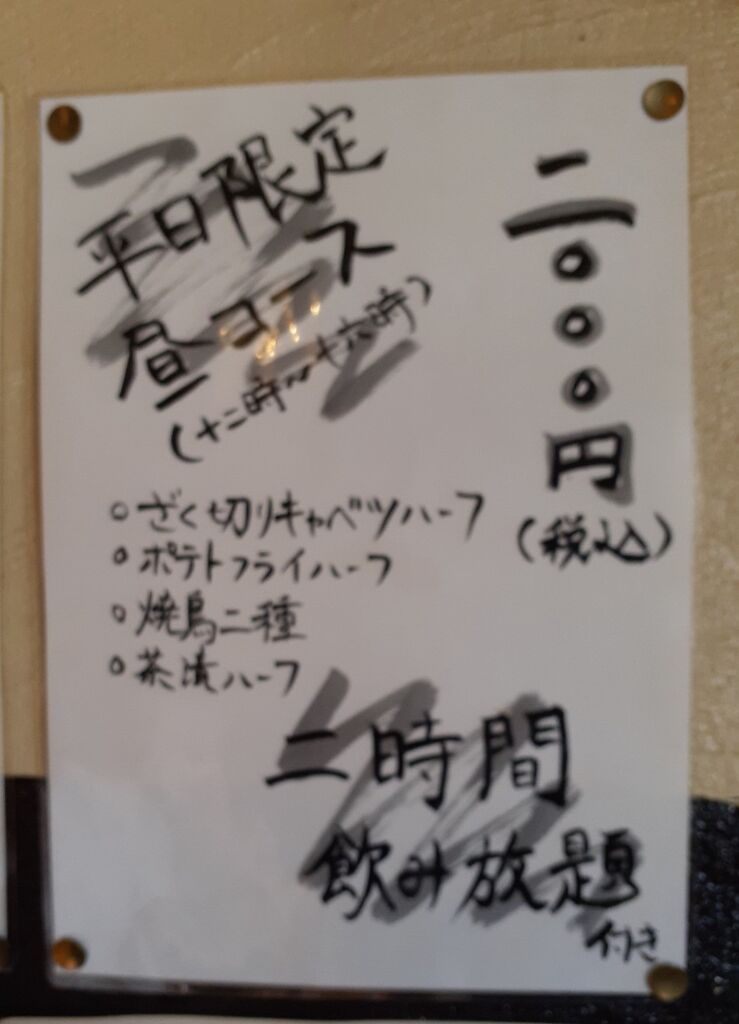 平日限定
昼コース
(十二時〜十六時)
二〇〇〇円
(税込)
○ざく切りキャベツハーフ
○ポテトフライハーフ
○焼鳥二種
○茶漬ハーフ
二時間
飲み放題
付き